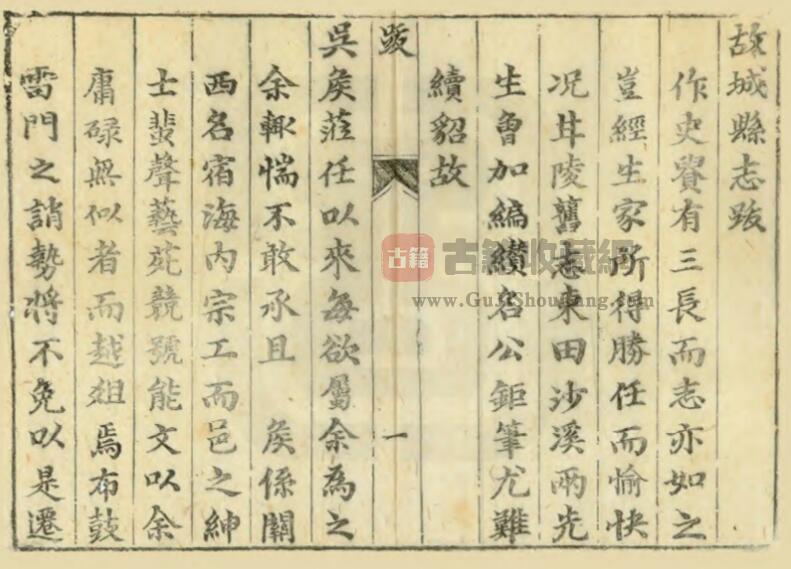 故城縣志跋
作史貲有三長而志亦如之
豈經生家所得勝任而愉快
況甘陵舊志東田沙溪兩先
生曾加編纘名公鉅筆尤難
續貂故
跋
一
吳矦蒞任以來每欲屬余為之
余輒惴不敢承且 矦係關
西名宿海内宗工而邑之紳
士蜚聲藝苑競號能文以余
庸碌無似者而越俎焉布鼓
雷門之誚勢將不免以是遷
古籍
古籍收藏网
www.GujiShouCang.com